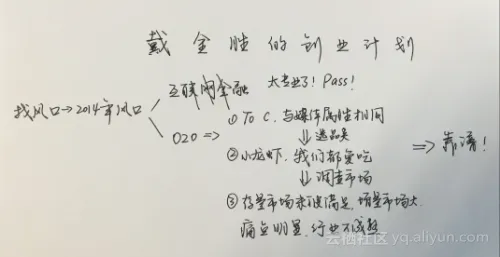 戴金胜的创业计划
找风口→2014年风口
互联网金融 太专业了!Pass!
O2O⇒
①To C,与媒体属性相同
⇓选品类
②小龙虾,我们都爱吃
⇓调查市场
③存量市场未被满足,增量市场大,
痛点明显,行业不成熟
⇒靠谱!
云栖社区 yq.aliyun.com